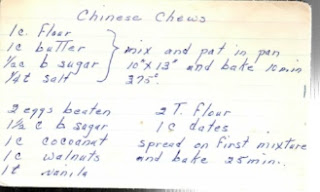 Chinese Chews
1c. Flour
1c butter mix and pat in pan
1/2c b sugar 10"x 13" and bake 10 min
1/4t salt 375°.
2 eggs beaten 2 T. flour
1 1/2 c b sugar 1 c dates.
1c cocoanut spread on first mixture
1c walnuts and bake 25 min.
1t vanila